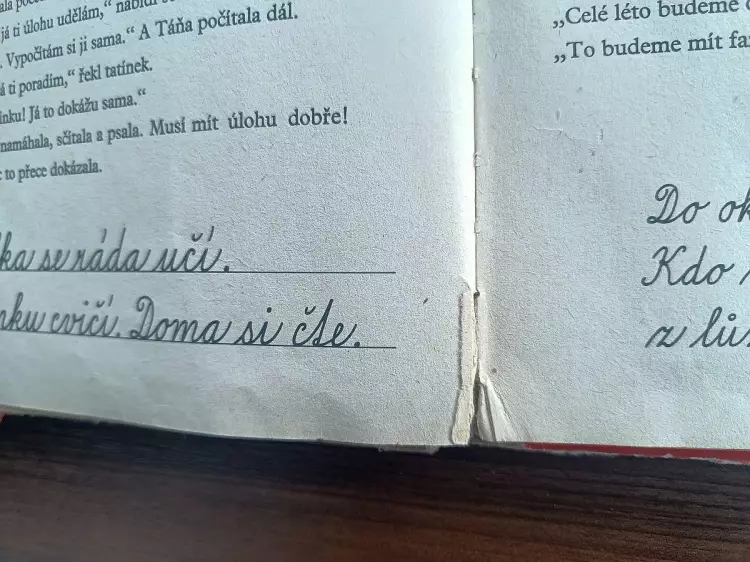 já ti úlohu udělám,“
Vypočítám si ji sama.“ A Táňa počítala dál.
ti poradím,“ řekl tatínek.
Já to dokážu sama.“
namáhala, sčítala a psala. Musí mít úlohu dobře!
to přece dokázala.
se ráda učí.
cvičí. Doma si čte.
„Celé léto budeme
„To budeme mít
Do
Kdo
z